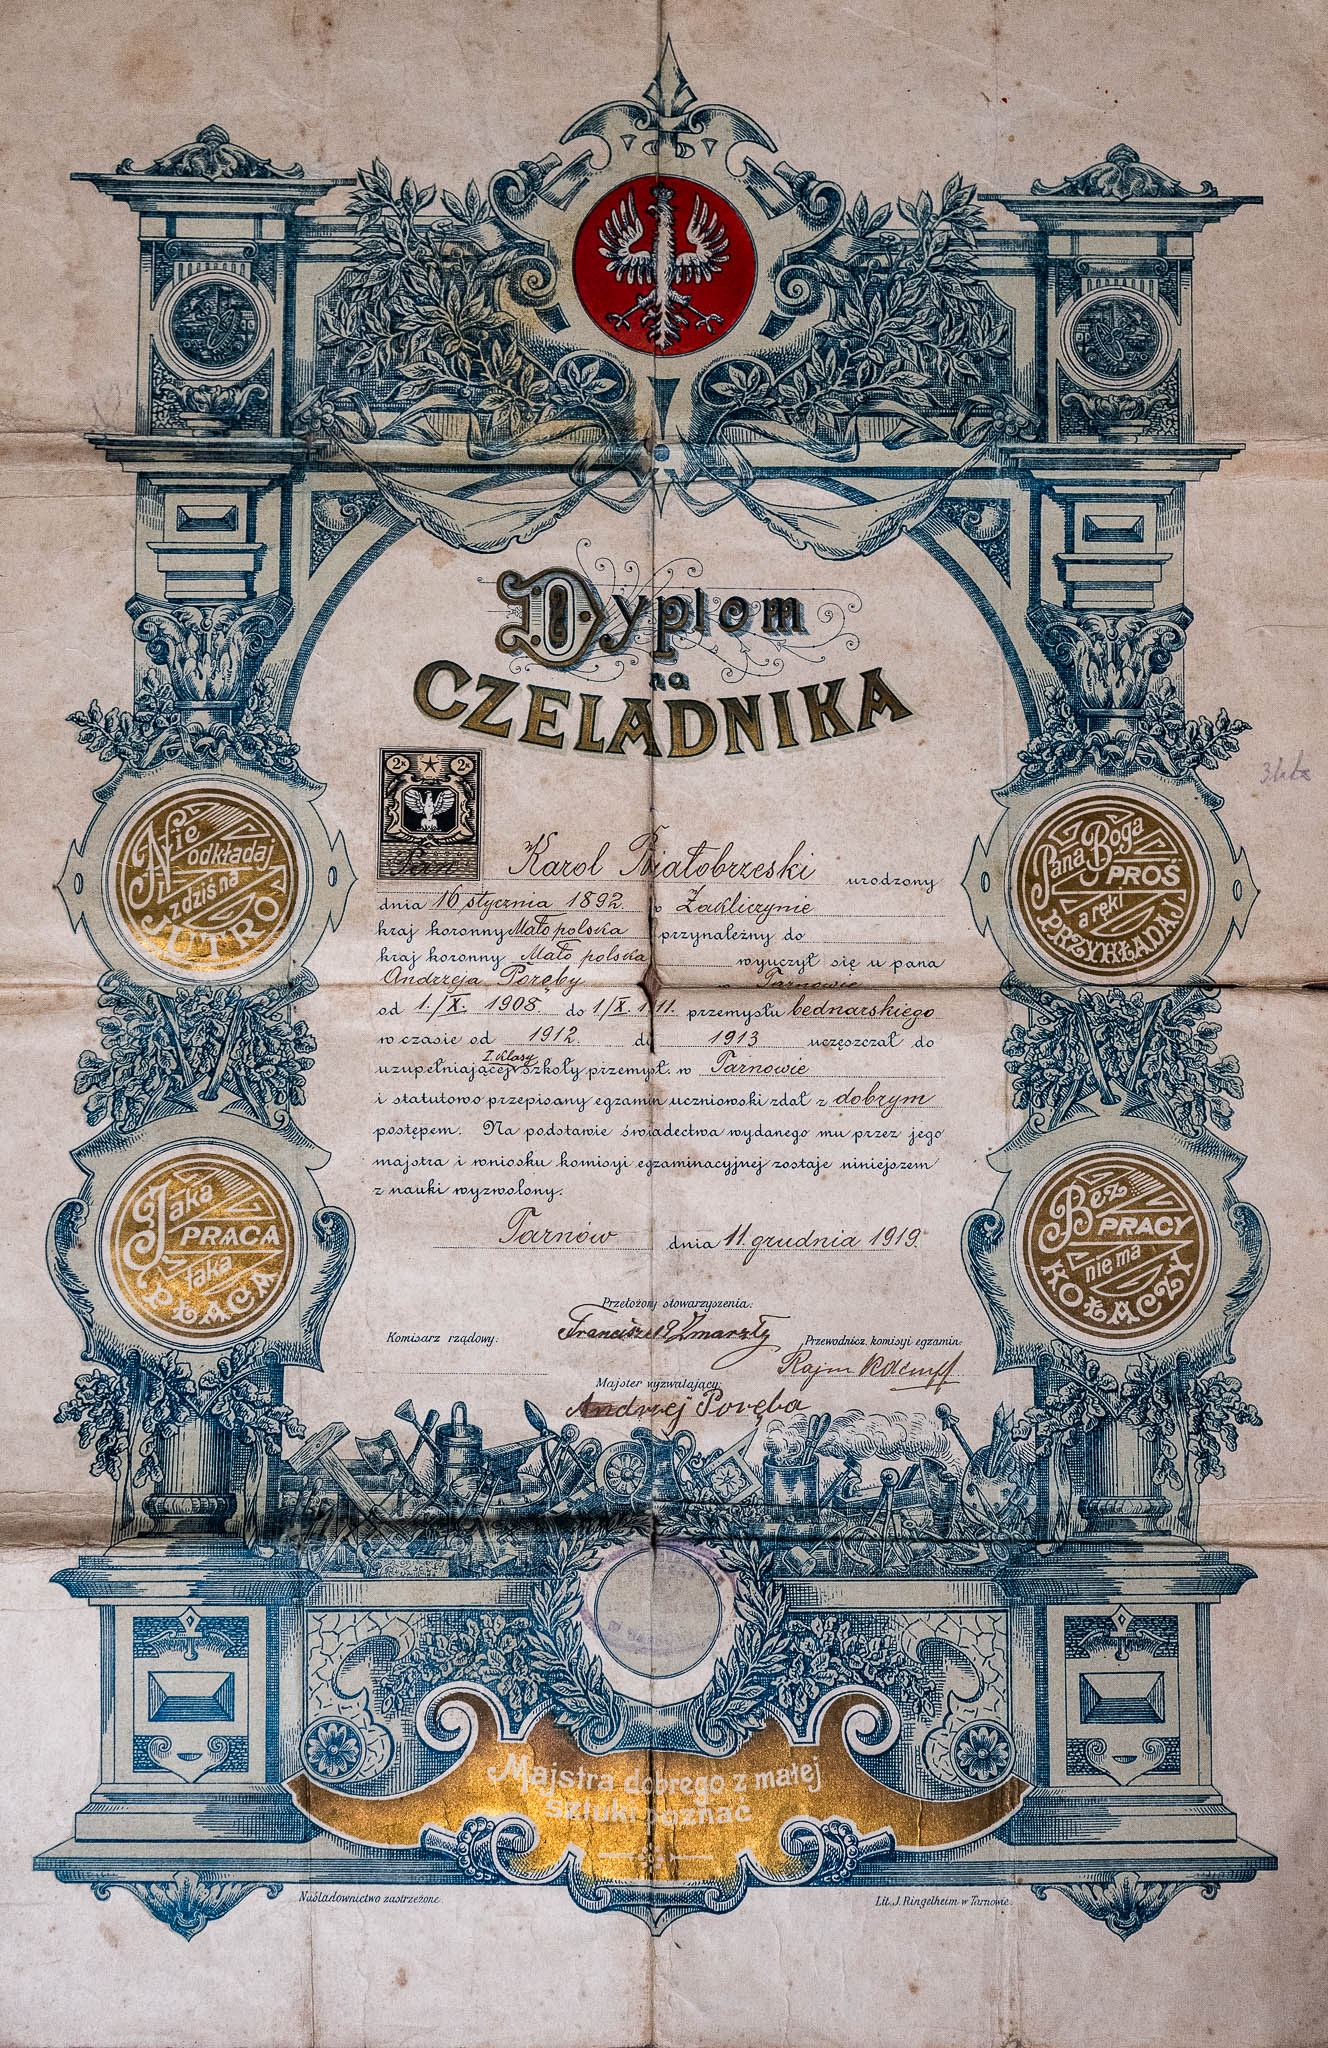 Dyplom
na
CZELADNIKA
2K 2K
Pan Karol Białobrzeski urodzony
dnia 16 stycznia 1892 w Zakliczynie
kraj koronny Małopolska przynależny do
kraj koronny Mało polska wyuczył się u pana
Andrzeja Poręby w Tarnowie
od 1./X. 1908. do 1/X. 1911. przemysłu bednarskiego
w czasie od 1912. do 1913 uczęszczał do
I. Klasy
uzupełniającej szkoły przemysł. w Tarnowie
i statutowo przepisany egzamin uczniowski zdał z dobrym
postępem. Na podstawie świadectwa wydanego mu przez jego
majstra i wniosku komisyi egzaminacyjnej zostaje niniejszem
z nauki wyzwolony.
Tarnów dnia 11. grudnia 1919.
Przełożony stowarzyszenia:
Franciszek Zmarzły
Komisarz rządowy:
Przewodnicz. komisyi egzamin.
Majster wyzwalający:
Andrzej Poręba
Nie
odkładaj
z dziś na
JUTRO
Pana Boga
PROŚ
a ręki
PRZYKŁADAJ
Jaka
PRACA
taka
PŁACA
Bez
PRACY
nie ma
KOŁACZY
3 lata
Majstra dobrego z małej
sztuki poznać
Naśladownictwo zastrzeżone
Lit. J. Ringelheim w Tarnowie.